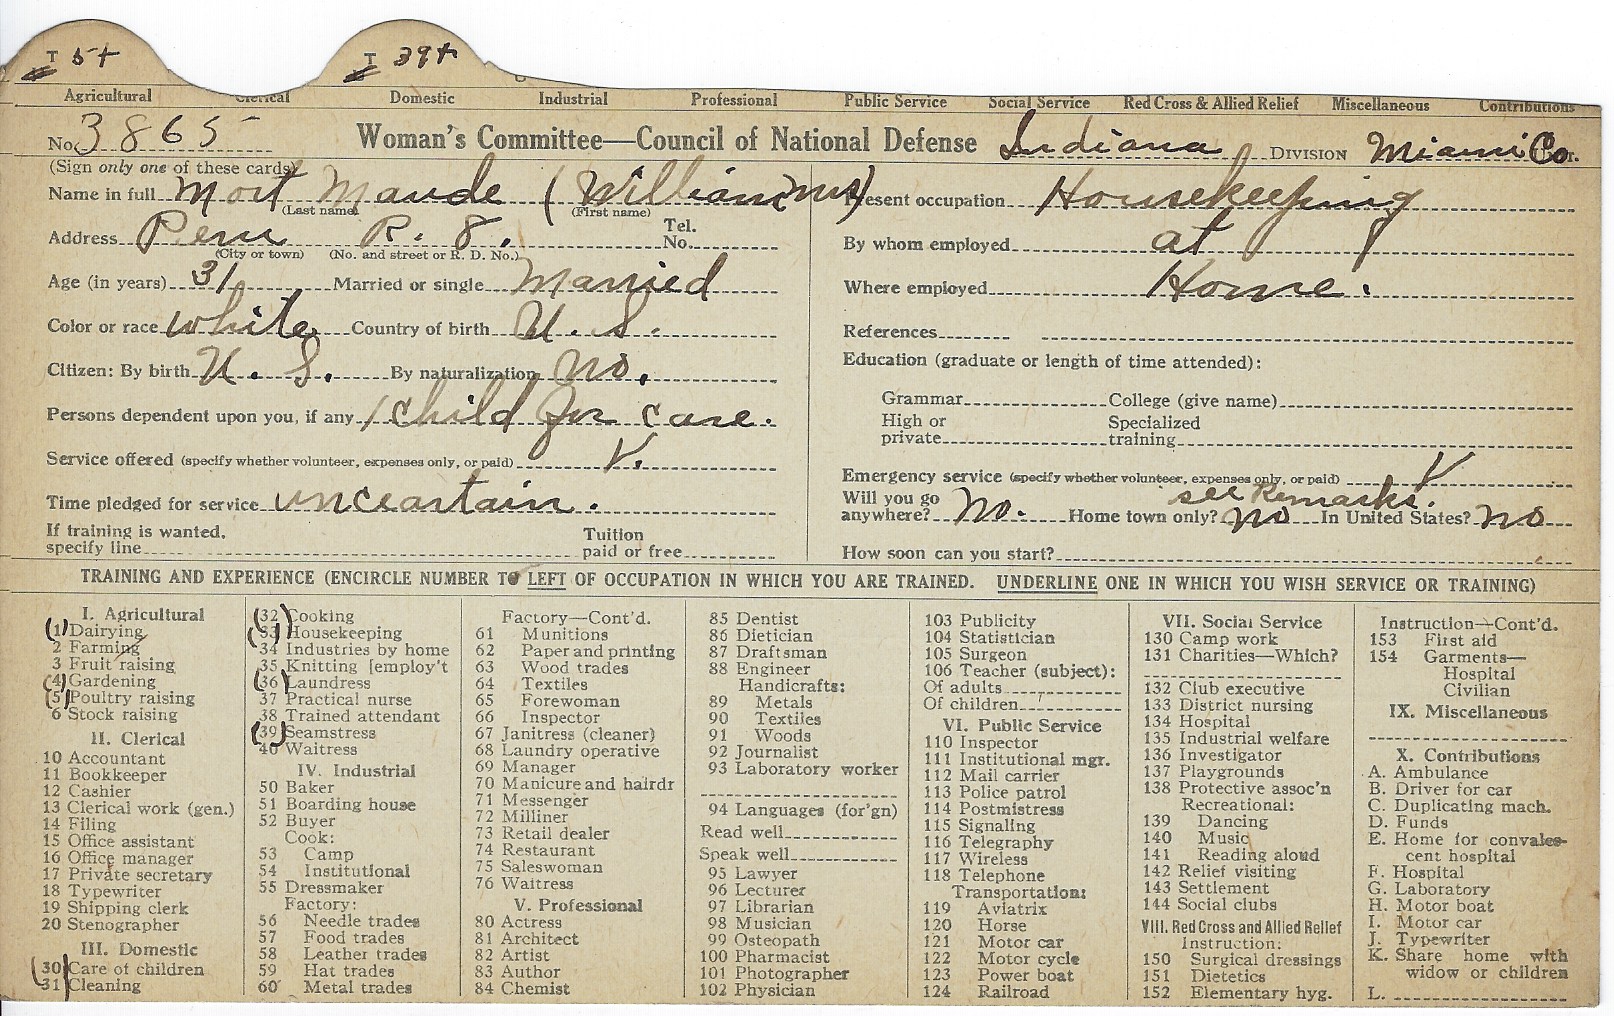 T 5+ T 39+
Agricultural Clerical Domestic Industrial Professional Public Service Social Service Red Cross & Allied Relief Miscellaneous Contributions
No. 3865 Woman's Committee—Council of National Defense Indiana DIVISION Miami Co.
(Sign only one of these cards)
Name in full Mort Maude (William Mrs)
(Last name) (First name)
Address Peru R. 8. Tel. No.
(City or town) (No. and street or R. D. No.)
Age (in years) 31 Married or single Married
Color or race white Country of birth U. S.
Citizen: By birth U. S. By naturalization no.
Persons dependent upon you, if any 1 child for care.
Service offered (specify whether volunteer, expenses only, or paid) V.
Time pledged for service unceartain.
If training is wanted,
specify line Tuition paid or free
Present occupation Housekeeping
By whom employed at
Where employed Home.
References
Education (graduate or length of time attended):
Grammar College (give name)
High or private Specialized training
Emergency service (specify whether volunteer, expenses only, or paid) V
see Remarks.
Will you go anywhere? No. Home town only? no In United States? no
How soon can you start?
TRAINING AND EXPERIENCE (ENCIRCLE NUMBER TO LEFT OF OCCUPATION IN WHICH YOU ARE TRAINED. UNDERLINE ONE IN WHICH YOU WISH SERVICE OR TRAINING)
I. Agricultural
(1) Dairying
2 Farming
3 Fruit raising
(4) Gardening
(5) Poultry raising
6 Stock raising
II. Clerical
10 Accountant
11 Bookkeeper
12 Cashier
13 Clerical work (gen.)
14 Filing
15 Office assistant
16 Office manager
17 Private secretary
18 Typewriter
19 Shipping clerk
20 Stenographer
III. Domestic
(30) Care of children
(31) Cleaning
(32) Cooking
(33) Housekeeping
34 Industries by home
35 Knitting [employ't
(36) Laundress
37 Practical nurse
38 Trained attendant
(39) Seamstress
40 Waitress
IV. Industrial
50 Baker
51 Boarding house
52 Buyer
Cook:
53 Camp
54 Institutional
55 Dressmaker
Factory:
56 Needle trades
57 Food trades
58 Leather trades
59 Hat trades
60 Metal trades
Factory—Cont'd.
61 Munitions
62 Paper and printing
63 Wood trades
64 Textiles
65 Forewoman
66 Inspector
67 Janitress (cleaner)
68 Laundry operative
69 Manager
70 Manicure and hairdr
71 Messenger
72 Milliner
73 Retail dealer
74 Restaurant
75 Saleswoman
76 Waitress
V. Professional
80 Actress
81 Architect
82 Artist
83 Author
84 Chemist
85 Dentist
86 Dietician
87 Draftsman
88 Engineer
Handicrafts:
89 Metals
90 Textiles
91 Woods
92 Journalist
93 Laboratory worker
94 Languages (for'gn)
Read well
Speak well
95 Lawyer
96 Lecturer
97 Librarian
98 Musician
99 Osteopath
100 Pharmacist
101 Photographer
102 Physician
103 Publicity
104 Statistician
105 Surgeon
106 Teacher (subject):
Of adults
Of children
VI. Public Service
110 Inspector
111 Institutional mgr.
112 Mail carrier
113 Police patrol
114 Postmistress
115 Signaling
116 Telegraphy
117 Wireless
118 Telephone
Transportation:
119 Aviatrix
120 Horse
121 Motor car
122 Motor cycle
123 Power boat
124 Railroad
VII. Social Service
130 Camp work
131 Charities—Which?
132 Club executive
133 District nursing
134 Hospital
135 Industrial welfare
136 Investigator
137 Playgrounds
138 Protective assoc'n
Recreational:
139 Dancing
140 Music
141 Reading aloud
142 Relief visiting
143 Settlement
144 Social clubs
VIII. Red Cross and Allied Relief
Instruction:
150 Surgical dressings
151 Dietetics
152 Elementary hyg.
Instruction—Cont'd.
153 First aid
154 Garments—
Hospital
Civilian
IX. Miscellaneous
X. Contributions
A. Ambulance
B. Driver for car
C. Duplicating mach.
D. Funds
E. Home for convales-
cent hospital
F. Hospital
G. Laboratory
H. Motor boat
I. Motor car
J. Typewriter
K. Share home with
widow or children
L.